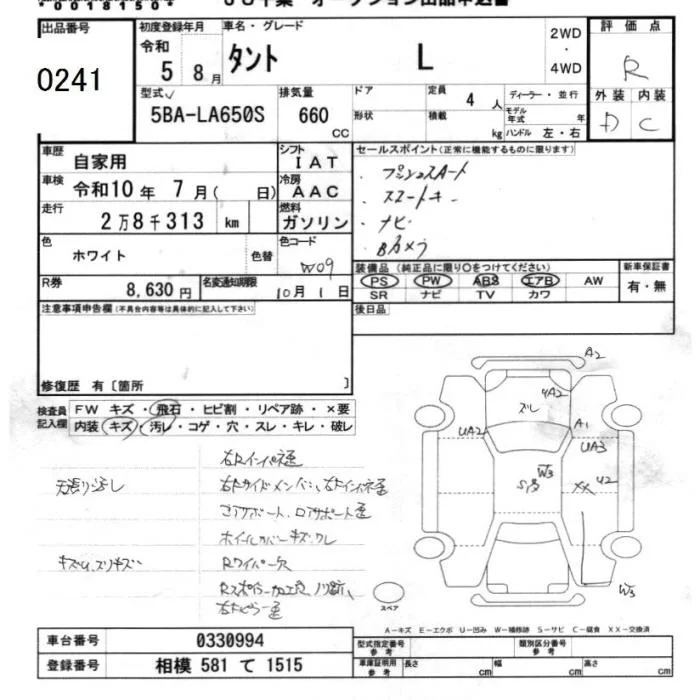 00181504
オークション出品申込書
出品番号
0241
初度登録年月
令和
5 8月
車名・グレード
タント L
2WD
・
4WD
評価点
R
外装 内装
D C
型式
5BA-LA650S
排気量
660
CC
ドア
形状
定員
4 人
積載
kg
ディーラー・並行
モデル年式 年
ハンドル 左・右
車歴
自家用
車検
令和10 年 7 月( 日)
走行
2 万 8 千 313 km
シフト
I A T
冷房
A A C
燃料
ガソリン
セールスポイント(正常に機能するものに限ります)
・プッシュスタート
・スマートキー
・ナビ
・Bカメラ
色
ホワイト
色替
色コード
W09
R券
8,630 円
名変通知期限
10月 1 日
装備品 (純正品に限り○をつけてください)
PS PW ABS エアB AW
SR ナビ TV カワ
新車保証書
有・無
注意事項申告欄(不具合内容等は具体的に記入して下さい)
後日品
修復歴 有〔箇所 〕
検査員記入欄
FW キズ・飛石・ヒビ割・リペア跡・×要
内装 キズ・汚レ・コゲ・穴・スレ・キレ・破レ
右Rインパネ歪
右Rサイドメンバー
ホイールカバーキズ、ワレ
Rワイパー欠
A2
4A2
ズレ
A1
UA2
UA3
W3
S歪
XX
U2
W3
スペア
A－キズ E－エクボ U－凹み W－補修跡 S－サビ C－腐食 XX－交換済
車台番号
0330994
登録番号
相模 581 て 1515
型式指定番号
参考
類別区分番号
参考
車庫証明用
参考
長さ cm
幅 cm
高さ cm